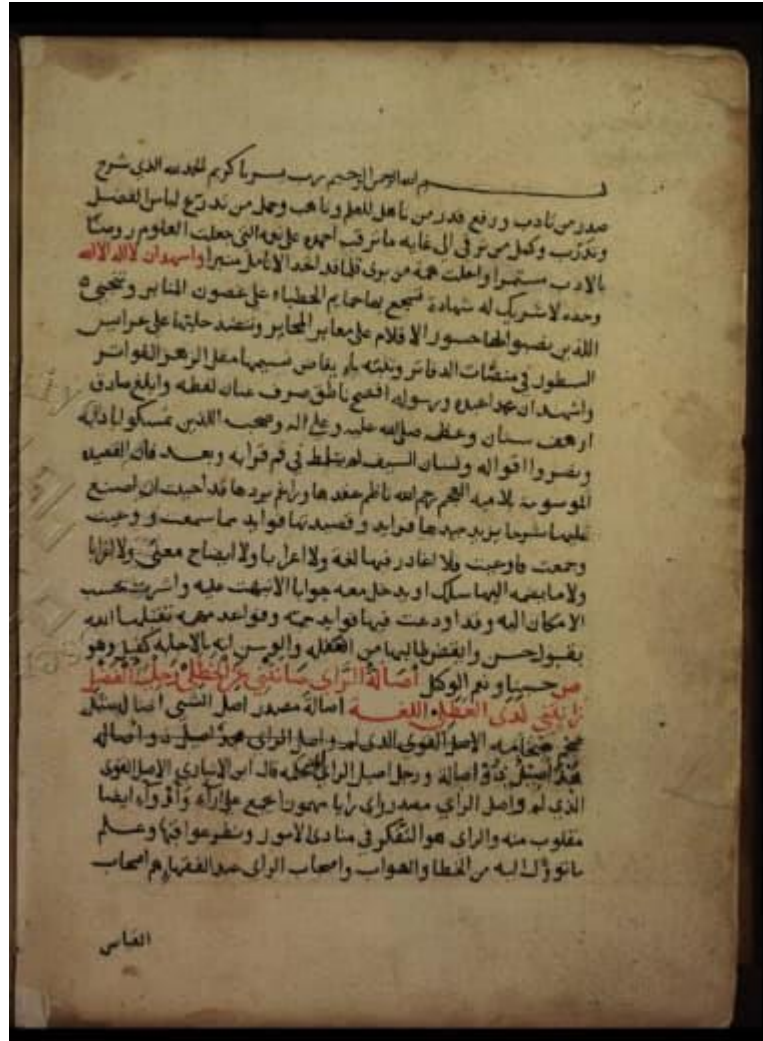 بسم الله الرحمن الرحيم رب يسر يا كريم الحمد لله الذي شرح
صدر من تادب ورفع قدر من تاهل للعلم وتاهب وجمل من تدرع لباس الفضل
وتدرب وكمل من ترقى الى غايه ما ترقب احمده على نعمه التي جعلت العلوم روضا
بالادب مستمرا واعلت همة من برى قلما قد اخد الانامل منبرا واشهد ان لا اله الا الله
وحده لا شريك له شهادة تسجع بها حمايم الخطباء على غصون المنابر وتنتحي
اللذين نصبوا لها جسور الاقلام على معابر المحابر وتنضد حليتها على عرايس
السطور في منصات الدفاتر ونسيمها مقل الزهر الفواتر
واشهد ان محمدا عبده ورسوله افصح ناطق صرف عنان لفظه وابلغ صادق
ارهف سنان وعظه صلى الله عليه وعلى اله وصحبه اللذين تمسكوا بادابه
ونصروا اقواله ولسان السيف لم يتلمظ في فم قرابه وبعد فان القصيده
الموسومة بلامية العجم رحم الله ناظم عقدها وراقم بردها قد احببت ان اصنع
عليها شرحا يزيد جيدها فرايد وقصيدتها فوايد مما سمعت ووعيت
وجمعت فاوعيت فلا اغادر فيها لغة ولا اعرابا ولا ايضاح معنى ولا اغرابا
ولا ما يضمه اليها سلك او يدخل معه جوابا الا نبهت عليه واشرت بحسب
الامكان اليه وقد اودعت فيها فوايد جمة وقواعد مهمه تقبلها الله
بقبول حسن وايقظ طالبها من الغفلة والوسن انه بالاجابه كفيل وهو
حسبنا ونعم الوكيل اصالة الراي صانتني عن الخطل وحلية الفضل
زانتني لدى العطل اللغة اصالة مصدر اصل الشي اصالة مثل
ضخم ضخامة الاصل القوي الدى له واصل الراى مجد اصيل ذو اصاله
مجد اصيل ذو اصالة ورجل اصيل الراي محكمه قال ابن الانباري الاصل القوى
الذى له واصل الراي مصدر راى رايا مهموز اجمع على ارآء وآرآء ايضا
مقلوب منه والراى هو التفكر في مبادى الامور ونظر عواقبها وعلم
ما تؤول اليه من الخطا والصواب واصحاب الراى عند الفقهاء هم اصحاب
القياس